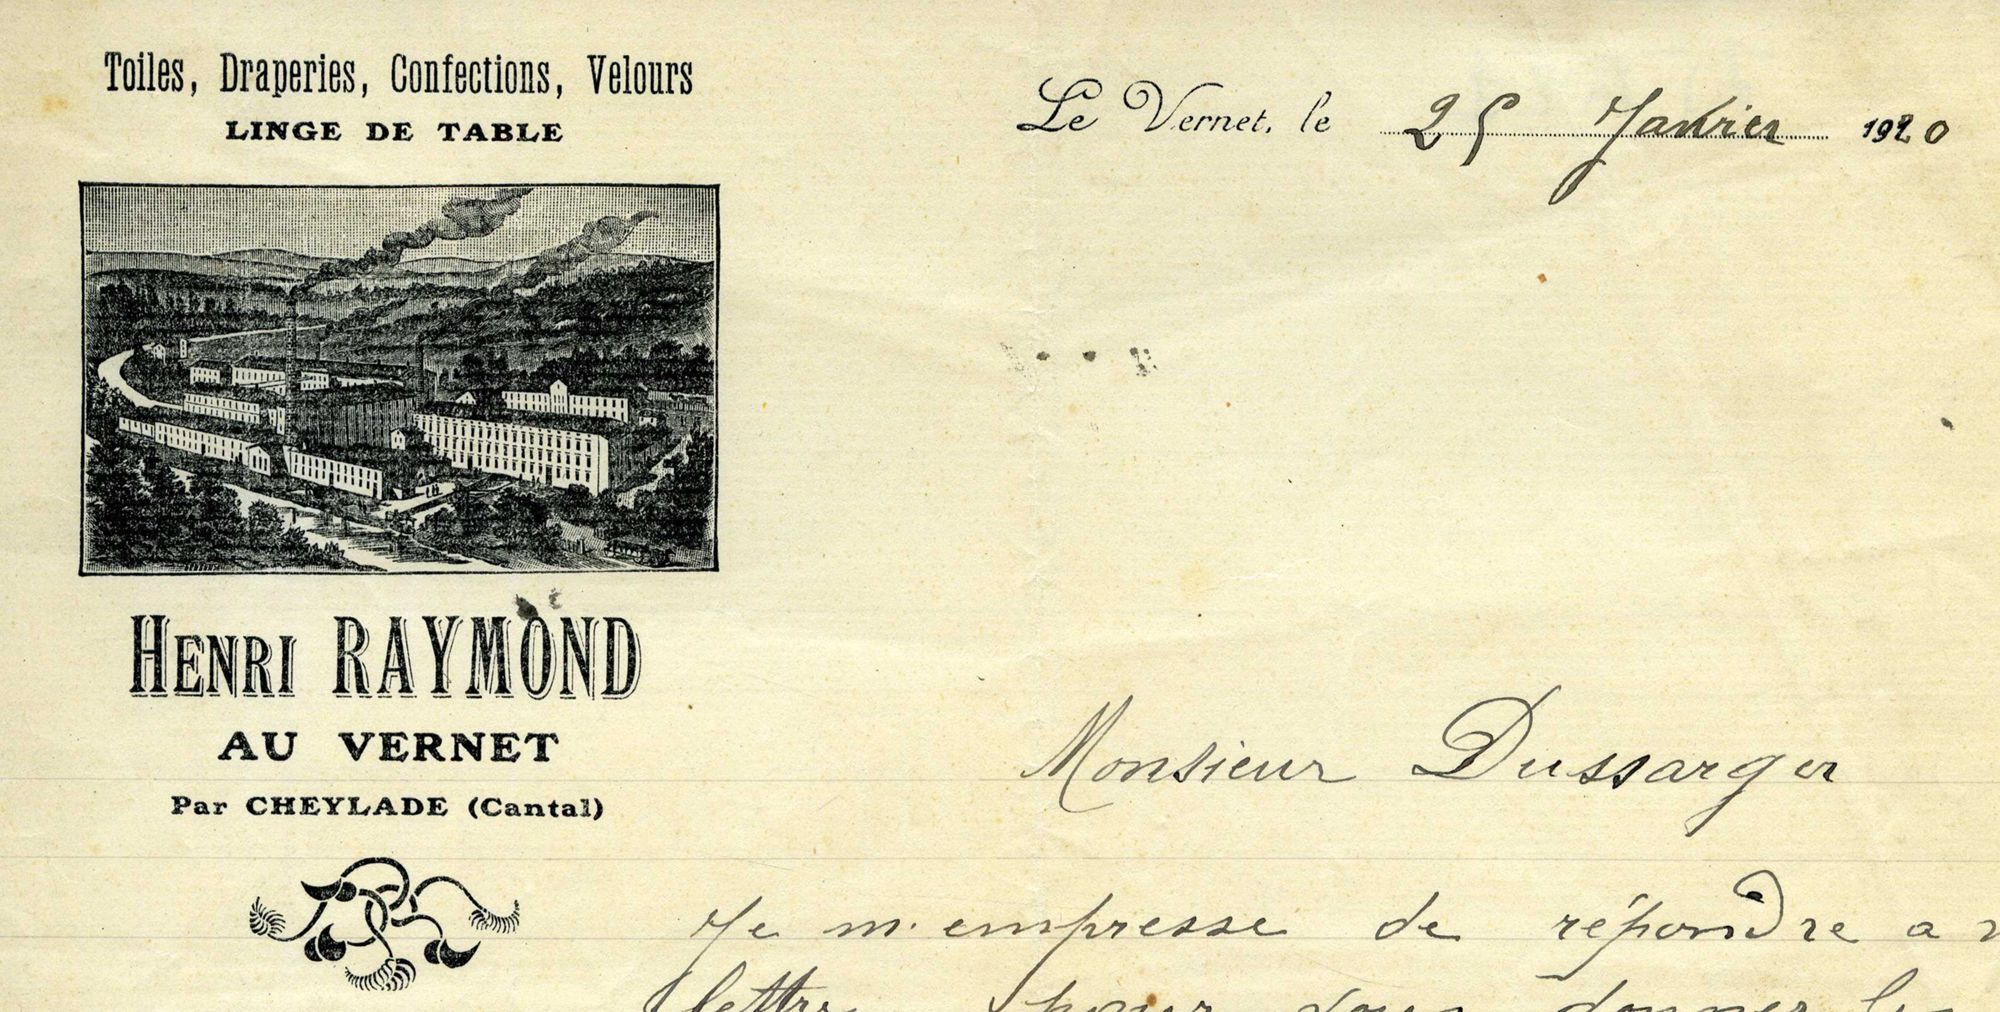 Toiles, Draperies, Confections, Velours
LINGE DE TABLE
Le Vernet, le 25 Janvier 1920
HENRI RAYMOND
AU VERNET
Par CHEYLADE (Cantal)
Monsieur Dussarger
Je m'empresse de répondre a
lettre pour vous donner les